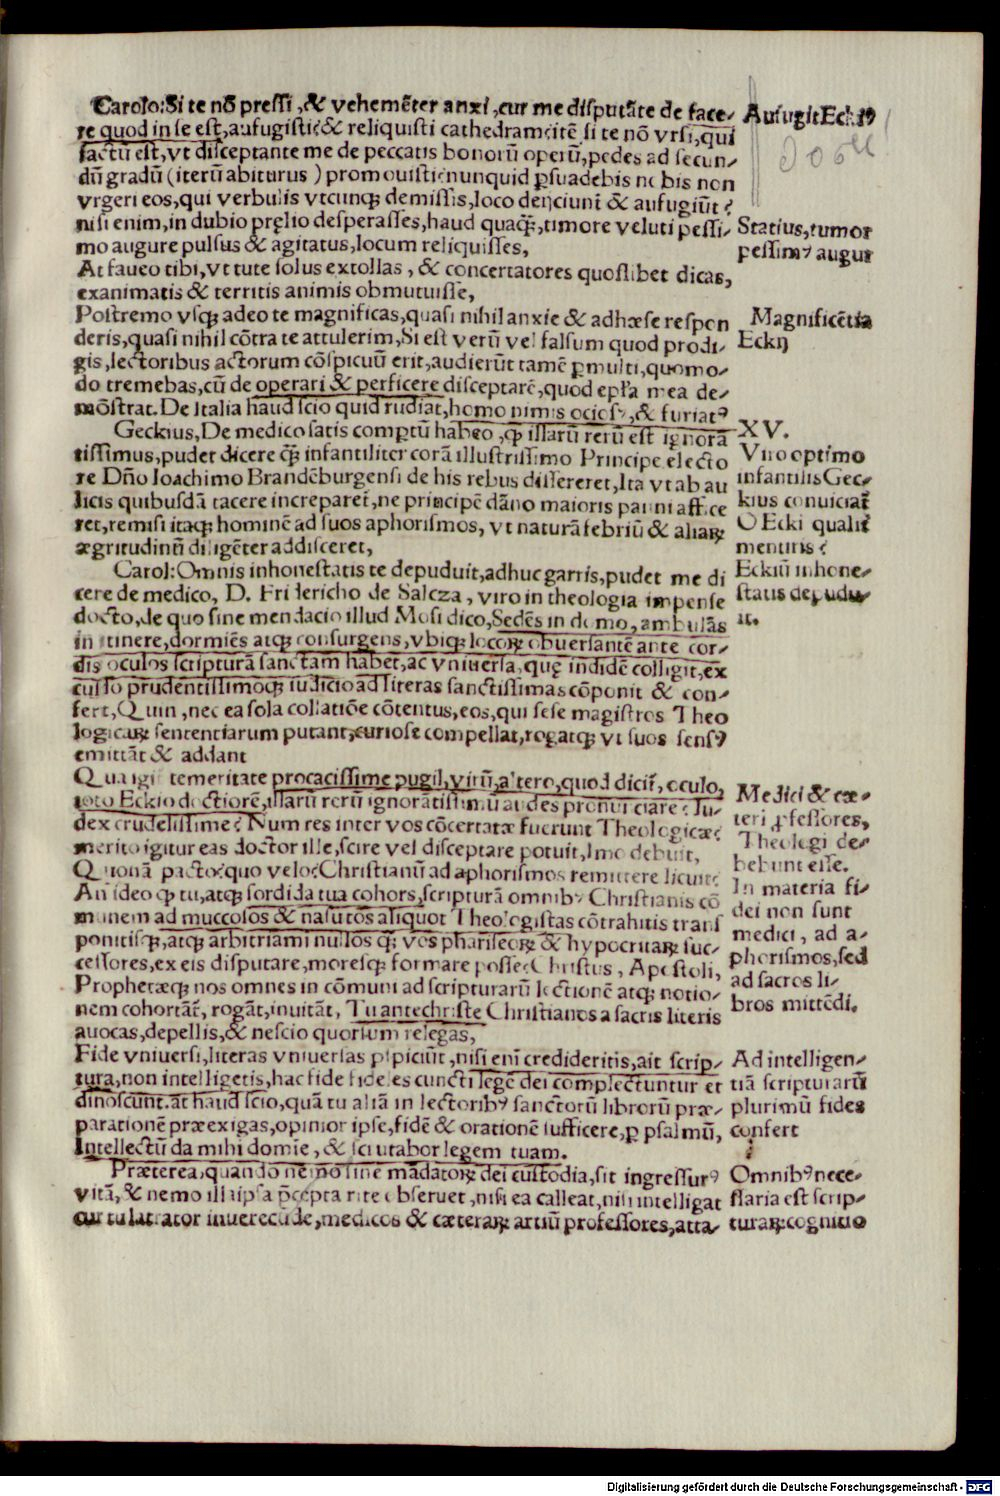 Carolo: Si te nõ pressi, & vehemẽter anxi, cur me disputãte de face-
re quod in se est, aufugisti? & reliquisti cathedram? itẽ si te nõ vrsi, qui
factũ est, vt disceptante me de peccatis bonorũ operũ, pedes ad secun-
dũ gradũ (iterũ abiturus) promouisti? nunquid ꝑsuadebis nobis non
vrgeri eos, qui verbulis vtcunqꝫ demissis, loco deijciunt & aufugiũt?
nisi enim, in dubio pręlio desperasses, haud quaqꝫ̃, timore veluti pessi-
mo augure pulsus & agitatus, locum reliquisses,
At faueo tibi, vt tute solus extollas, & concertatores quoslibet dicas,
exanimatis & territis animis obmutuisse,
Postremo vsqꝫ adeo te magnificas, quasi nihil anxie & adhæse respon
deris, quasi nihil cõtra te attulerim, Si est verũ vel falsum quod prodi-
gis, lectoribus actorum cõspicuũ erit, audierũt tamẽ ꝑmulti, quomo-
do tremebas, cũ de operari & perficere disceptarẽ, quod epła mea de-
mõstrat. De Italia haud scio quid rudiat, homo nimis ociosꝰ, & furiatꝰ
Geckius, De medico satis comꝑtũ habeo, qꝫ illarũ rerũ est ignorã
tissimus, pudet dicere qꝫ̃ infantiliter corã illustrissimo Principe electo
re Dño Ioachimo Brandẽburgensi de his rebus dissereret, Ita vt ab au
licis quibusdã tacere increparet̃, ne principẽ dãno maioris panni affice
ret, remisi itaqꝫ hominẽ ad suos aphorismos, vt naturã febriũ & aliaꝝ
ægritudinũ diligẽter addisceret,
Carol: Omnis inhonestatis te depuduit, adhuc garris, pudet me di
cere de medico, D. Friderichο de Salcza, viro in theologia impense
docto, de quo sine mendacio illud Mosi dico, Sedẽs in domo, ambulãs
in itinere, dormiẽs atqꝫ consurgens, vbiqꝫ locoꝝ obuersantẽ ante cor-
dis oculos scripturã sanctam habet, ac vniuersa, quę indidẽ colligit, ex
cusso prudentissimoqꝫ iudicio ad literas sanctissimas cõponit & con-
fert, Quin, nec ea sola collatiõe cõtentus, eos, qui sese magistros Theo
logicaꝝ sententiarum putant, curiose compellat, rogatqꝫ vt suos sensꝰ
emittãt & addant
Qua igit̃ temeritate procacissime pugil, virũ, altero, quod dicit̃, oculo,
toto Eckio doctiorẽ, illarũ rerũ ignorãtissimũ audes pronunciare? Iu-
dex crudelissime? Num res inter vos cõcertatæ fuerunt Theologicæ?
merito igitur eas doctor ille, scire vel disceptare potuit, Imo debuit,
Quonã pacto? quo velo? Christianũ ad aphorismos remittere licuit?
An ideo qꝫ tu, atqꝫ sordida tua cohors, scripturã omnibꝰ Christianis cõ
munem ad muccosos & nasutos aliquot Theologistas cõtrahitis trans
ponitisqꝫ, atqꝫ arbitriami nullos qꝫ̃ vos phariseoꝝ & hypocritaꝝ suc-
cessores, ex eis disputare, moresqꝫ formare posse? Christus, Apostoli,
Prophetæqꝫ nos omnes in cõmuni ad scripturarũ lectionẽ atqꝫ notio-
nem cohortãt̃, rogãt, inuitãt, Tu antechriste Christianos a sacris literis
auocas, depellis, & nescio quorsum relegas,
Fide vniuersi, literas vniuersas ꝑspiciũt, nisi eni credideritis, ait scrip-
tura, non intelligetis, hac fide fideles cuncti legẽ dei complectuntur et
dinoscunt. at haud scio, quã tu aliã in lectoribꝰ sanctorũ librorũ præ-
parationẽ præexigas, opinior ipse, fidẽ & orationẽ sufficere, ꝑ psalmũ,
Intellectũ da mihi domie, & scrutabor legem tuam.
Præterea, quando nemo sine mãdatoꝝ dei custodia, sit ingressurꝰ
vitã, & nemo illa ipsa p̃cepta rite obseruet, nisi ea calleat, nisi intelligat
cur tu latrator inuerecũde, medicos & cæteraꝝ artiũ professores, atta-
Aufugit Eckiꝰ
Statius, tumor
pessimꝰ augur
Magnificẽtia
Eckij
XV.
Viro optimo
infantilis Gec-
kius conuiciat̃
O Ecki qualit̃
mentiris?
Eckiũ inhone-
status depudu-
it.
Medici & cæ-
teri ꝓfessores,
Theologi de-
bebunt esse.
In materia fi-
dei non sunt
medici, ad a-
phorismos, sed
ad sacros li-
bros mittẽdi.
Ad intelligen-
tiã scripturarũ
plurimũ fides
confert
Omnibꝰ nece-
ssaria est scrip-
turaꝝ cognitio
Digitalisierung gefördert durch die Deutsche Forschungsgemeinschaft - DFG